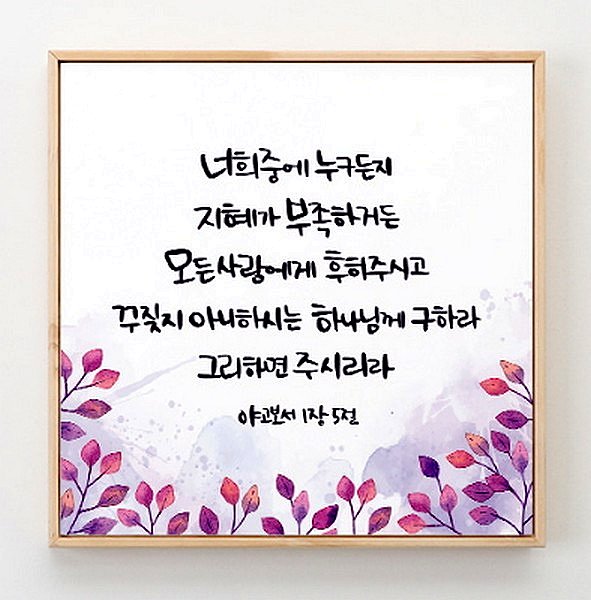 너희중에 누구든지
지혜가 부족하거든
모든사람에게 후히주시고
꾸짖지 아니하시는 하나님께 구하라
그리하면 주시리라
야고보서 1장 5절